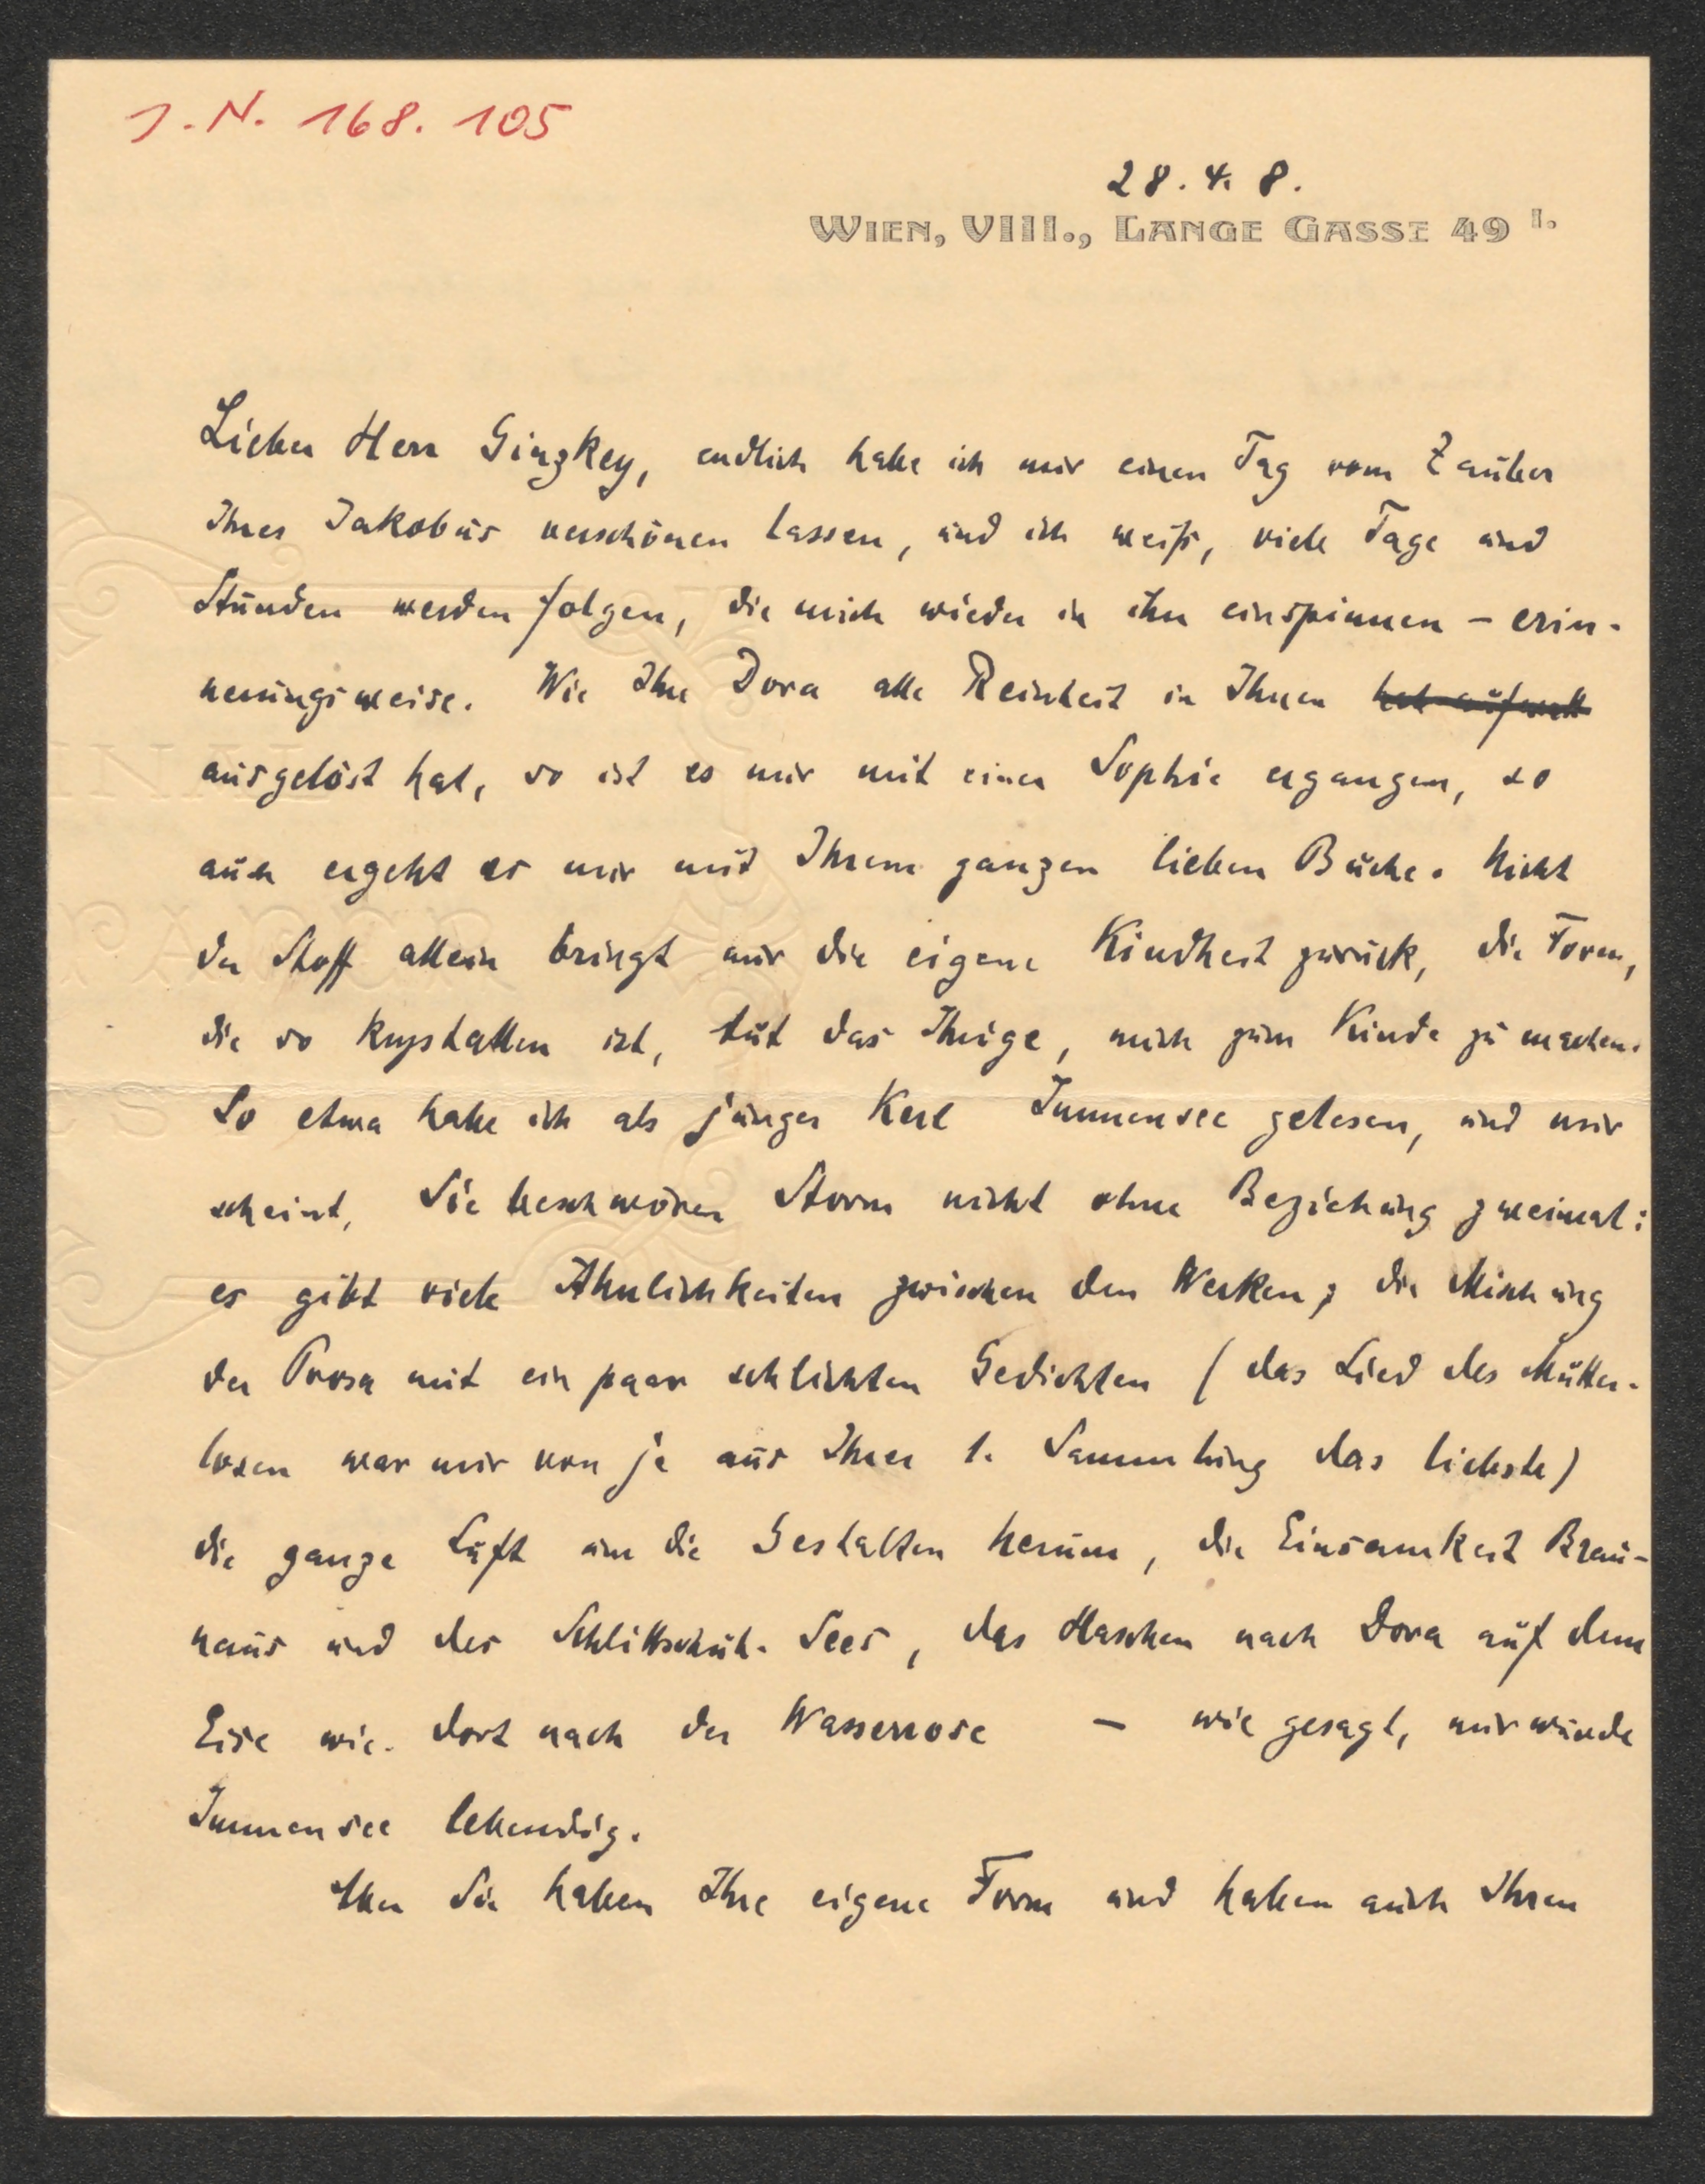 J.N. 168.105
28. 4. 8.
WIEN, VIII., LANGE GASSE 49 I.
Lieber Herr Ginzkey, endlich habe ich mir einen Tag vom Zauber
Ihres Jakobus verschönen lassen, und ich weiß, viele Tage und
Stunden werden folgen, die mich wieder in ihn einspinnen – erin-
nerungsweise. Wie Ihre Dora alle Reinheit in Ihnen
ausgelöst hat, so ist es mir mit einer Sophie ergangen, so
auch ergeht es mir mit Ihrem ganzen lieben Buche. Nicht
der Stoff allein bringt mir die eigene Kindheit zurück, die Form,
die so krystallen ist, tut das Ihrige, mich zum Kinde zu machen.
So etwa habe ich als junger Kerl Immensee gelesen, und mir
scheint, Sie beschwören Storm nicht ohne Beziehung zweimal:
es gibt viele Ähnlichkeiten zwischen den Werken; die Mischung
der Prosa mit ein paar schlichten Gedichten (das Lied des Mutter-
losen war mir von je aus Ihrer 1. Sammlung das liebste)
die ganze Luft um die Gestalten herum, die Einsamkeit Brau-
naus und des Schlittschuh-Sees, das Haschen nach Dora auf dem
Eise wie dort nach der Wasserrose – wie gesagt, mir wurde
Immensee lebendig.
Aber Sie haben Ihre eigene Form und haben auch Ihren